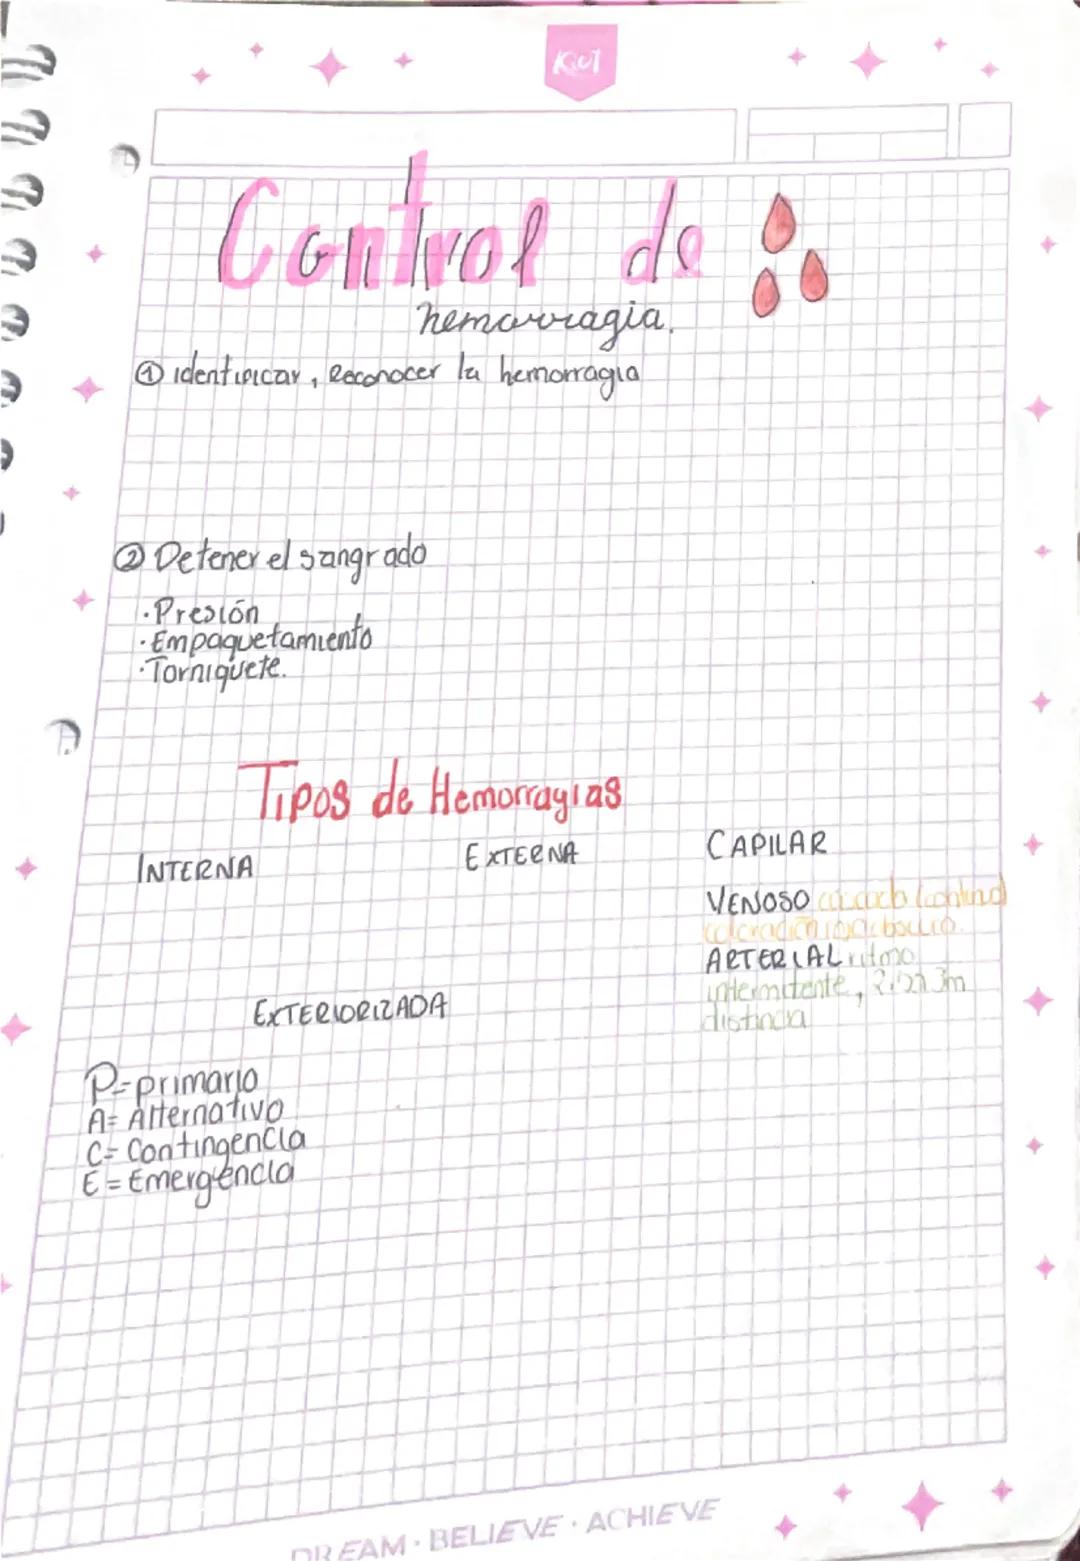 Kiut
Control de
hemorragia.
① identificar, Reconocer la hemorragia
② Detener el sangrado
·Presión
·Empaquetamiento
·Torniquete.
Tipos de Hemorragias
INTERNA
EXTERNA
CAPILAR
VENOSO
ARTERIAL ritmo
intermitente, 3m
distincia
EXTERIORIZADA
P=primario
A= Alternativo
C= Contingencia
E= Emergencia
DREAM · BELIEVE · ACHIEVE